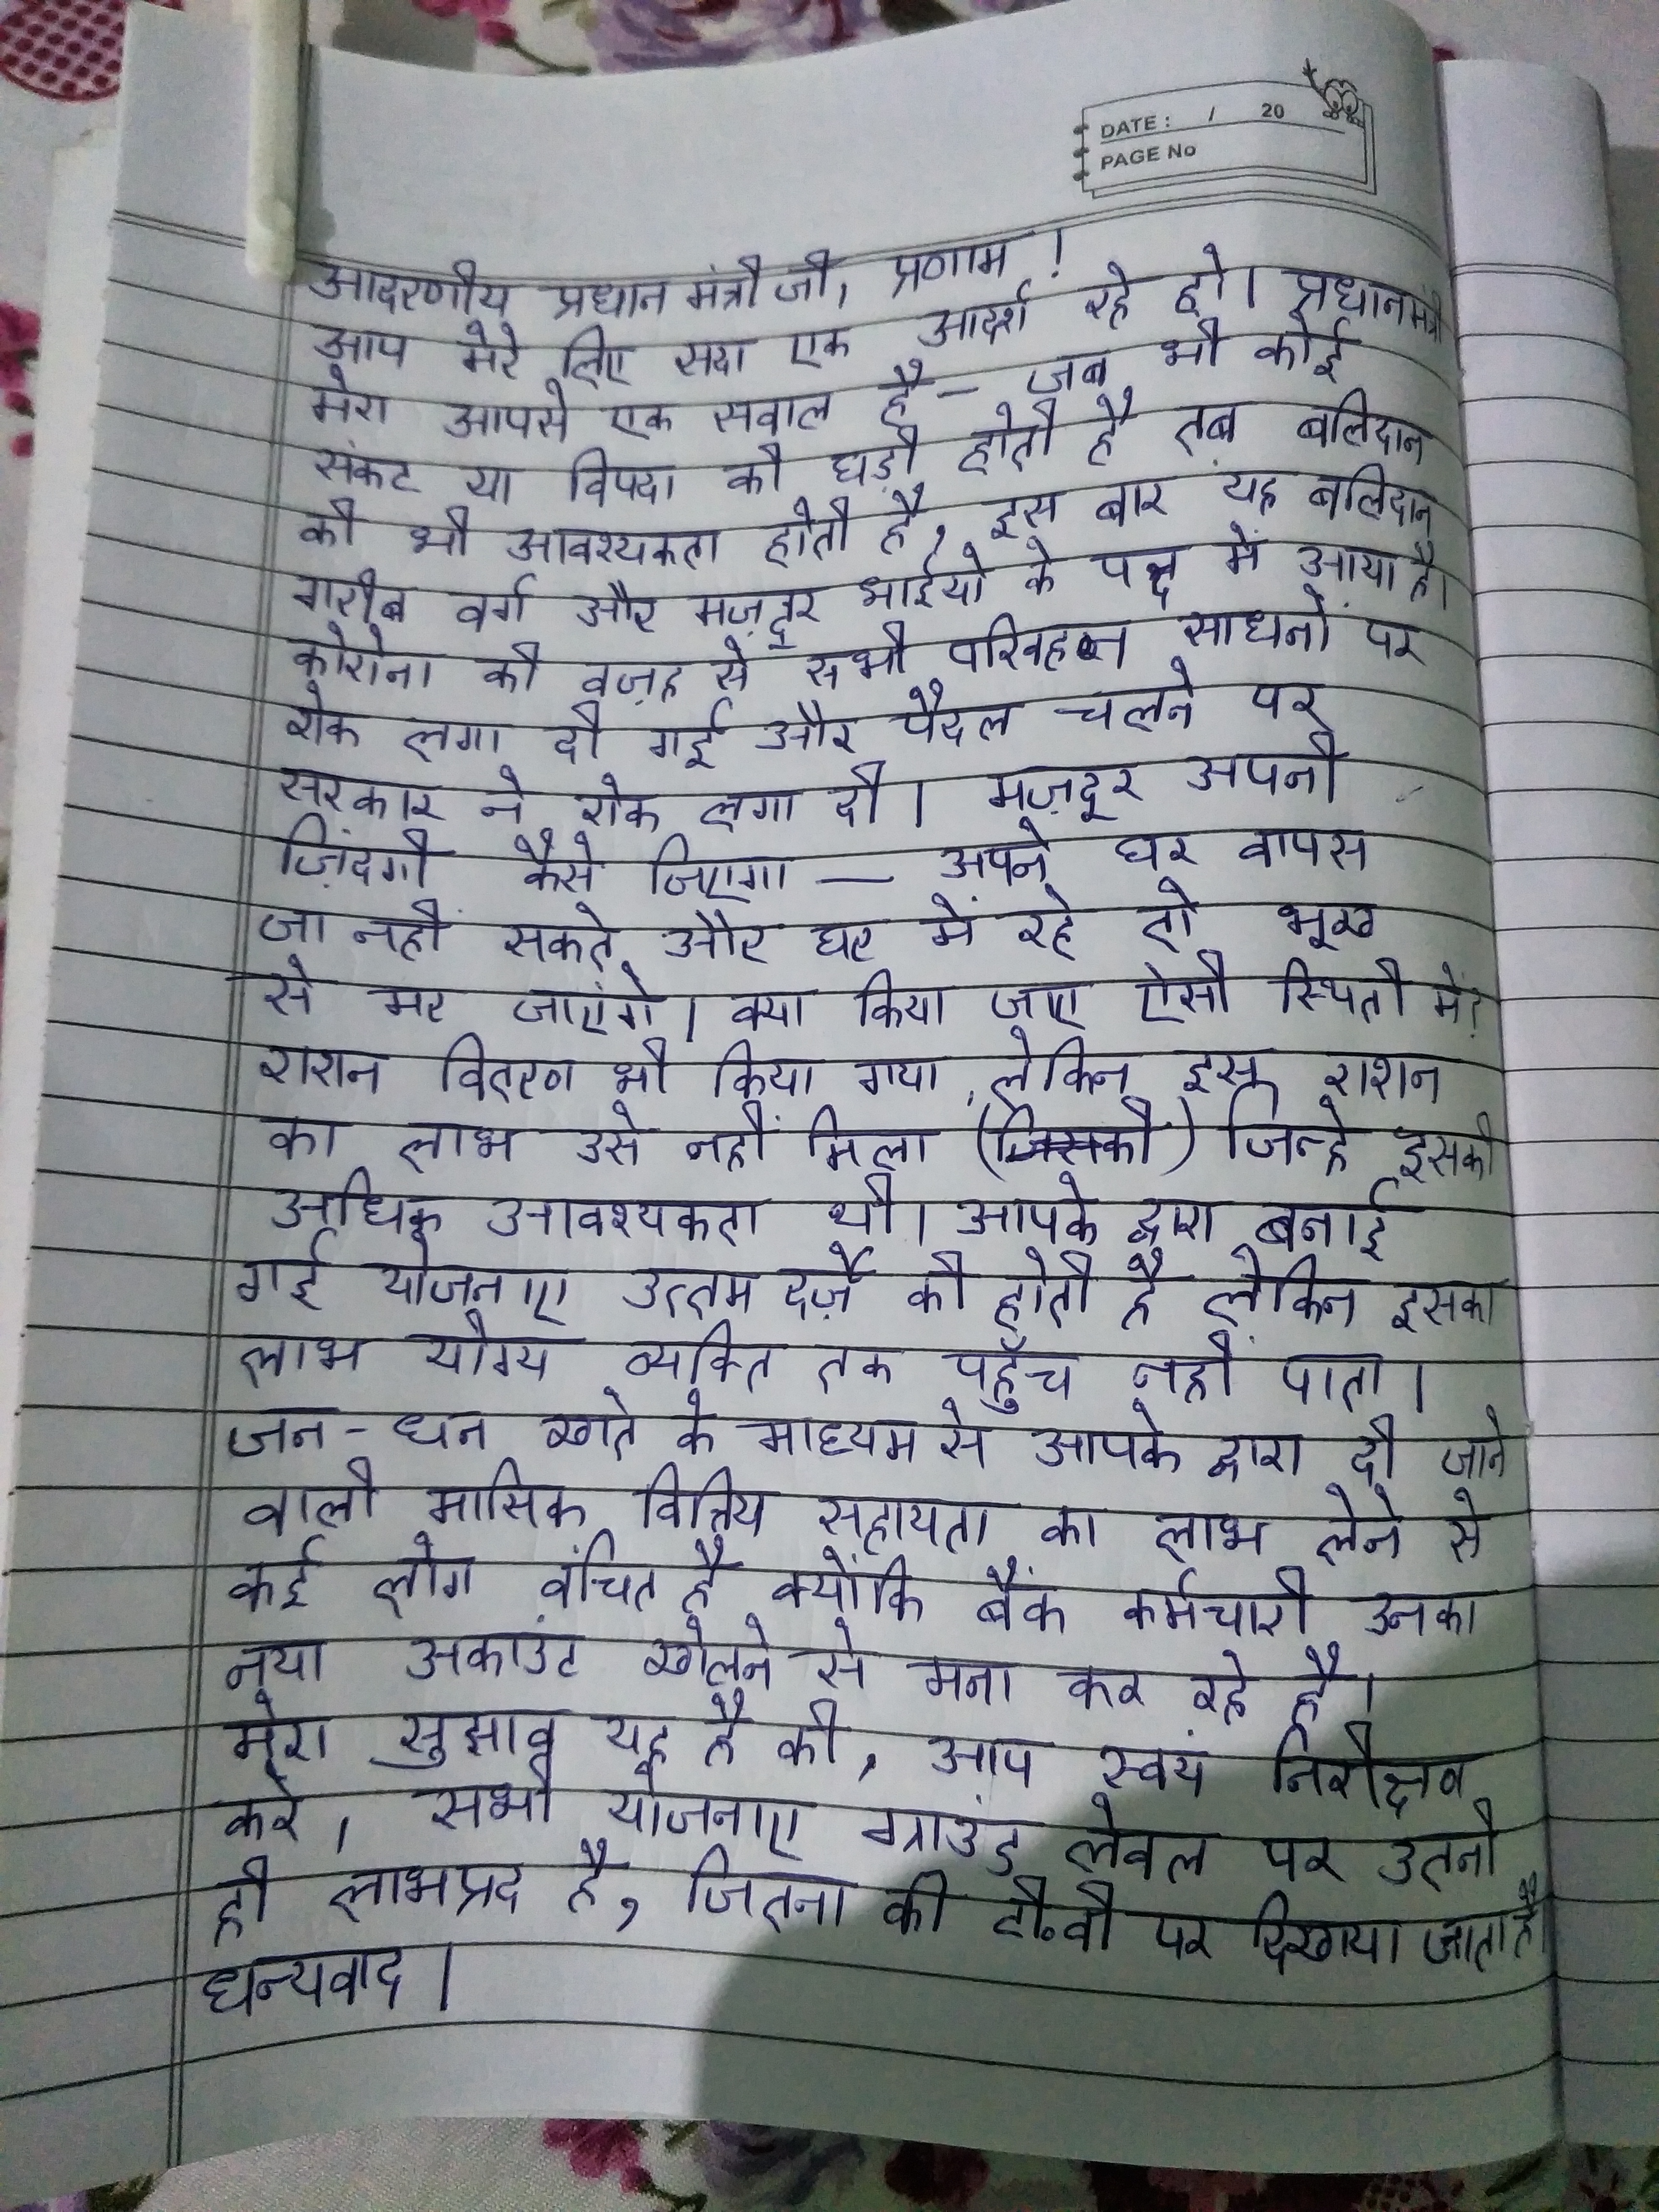 DATE : / 20
PAGE No
आदरणीय प्रधान मंत्री जी, प्रणाम !
आप मेरे लिए सदा एक आदर्श रहे हो। प्रधानमंत्री
मेरा आपसे एक सवाल है – जब भी कोई
संकट या विपदा की घड़ी होती है तब बलिदान
की भी आवश्यकता होती है, इस बार यह बलिदान
गरीब वर्ग और मज़दूर भाईयों के पक्ष में आया है।
कोरोना की वज़ह से सभी परिवहन साधनों पर
रोक लगा दी गई और पैदल चलने पर
सरकार ने रोक लगा दी। मज़दूर अपनी
ज़िंदगी कैसे जिएगा — अपने घर वापस
जा नहीं सकते और घर में रहे तो भूख
से मर जाएंगे। क्या किया जाए ऐसी स्थिती में?
राशन वितरण भी किया गया, लेकिन इस राशन
का लाभ उसे नहीं मिला (जिसकी) जिन्हे इसकी
अधिक आवश्यकता थी। आपके द्वारा बनाई
गई योजनाए उत्तम दर्ज़े की होती है लेकिन इसका
लाभ योग्य व्यक्ति तक पहुँच नहीं पाता।
जन-धन खाते के माध्यम से आपके द्वारा दी जाने
वाली मासिक वित्तिय सहायता का लाभ लेने से
कई लोग वंचित है क्योंकि बैंक कर्मचारी उनका
नया अकाउंट खोलने से मना कर रहे है।
मेरा सुझाव यह है की, आप स्वयं निरीक्षव
करे, सभी योजनाए ग्राउंड लेवल पर उतनी
ही लाभप्रद है, जितना की टी.वी पर दिखाया जाता है
धन्यवाद।